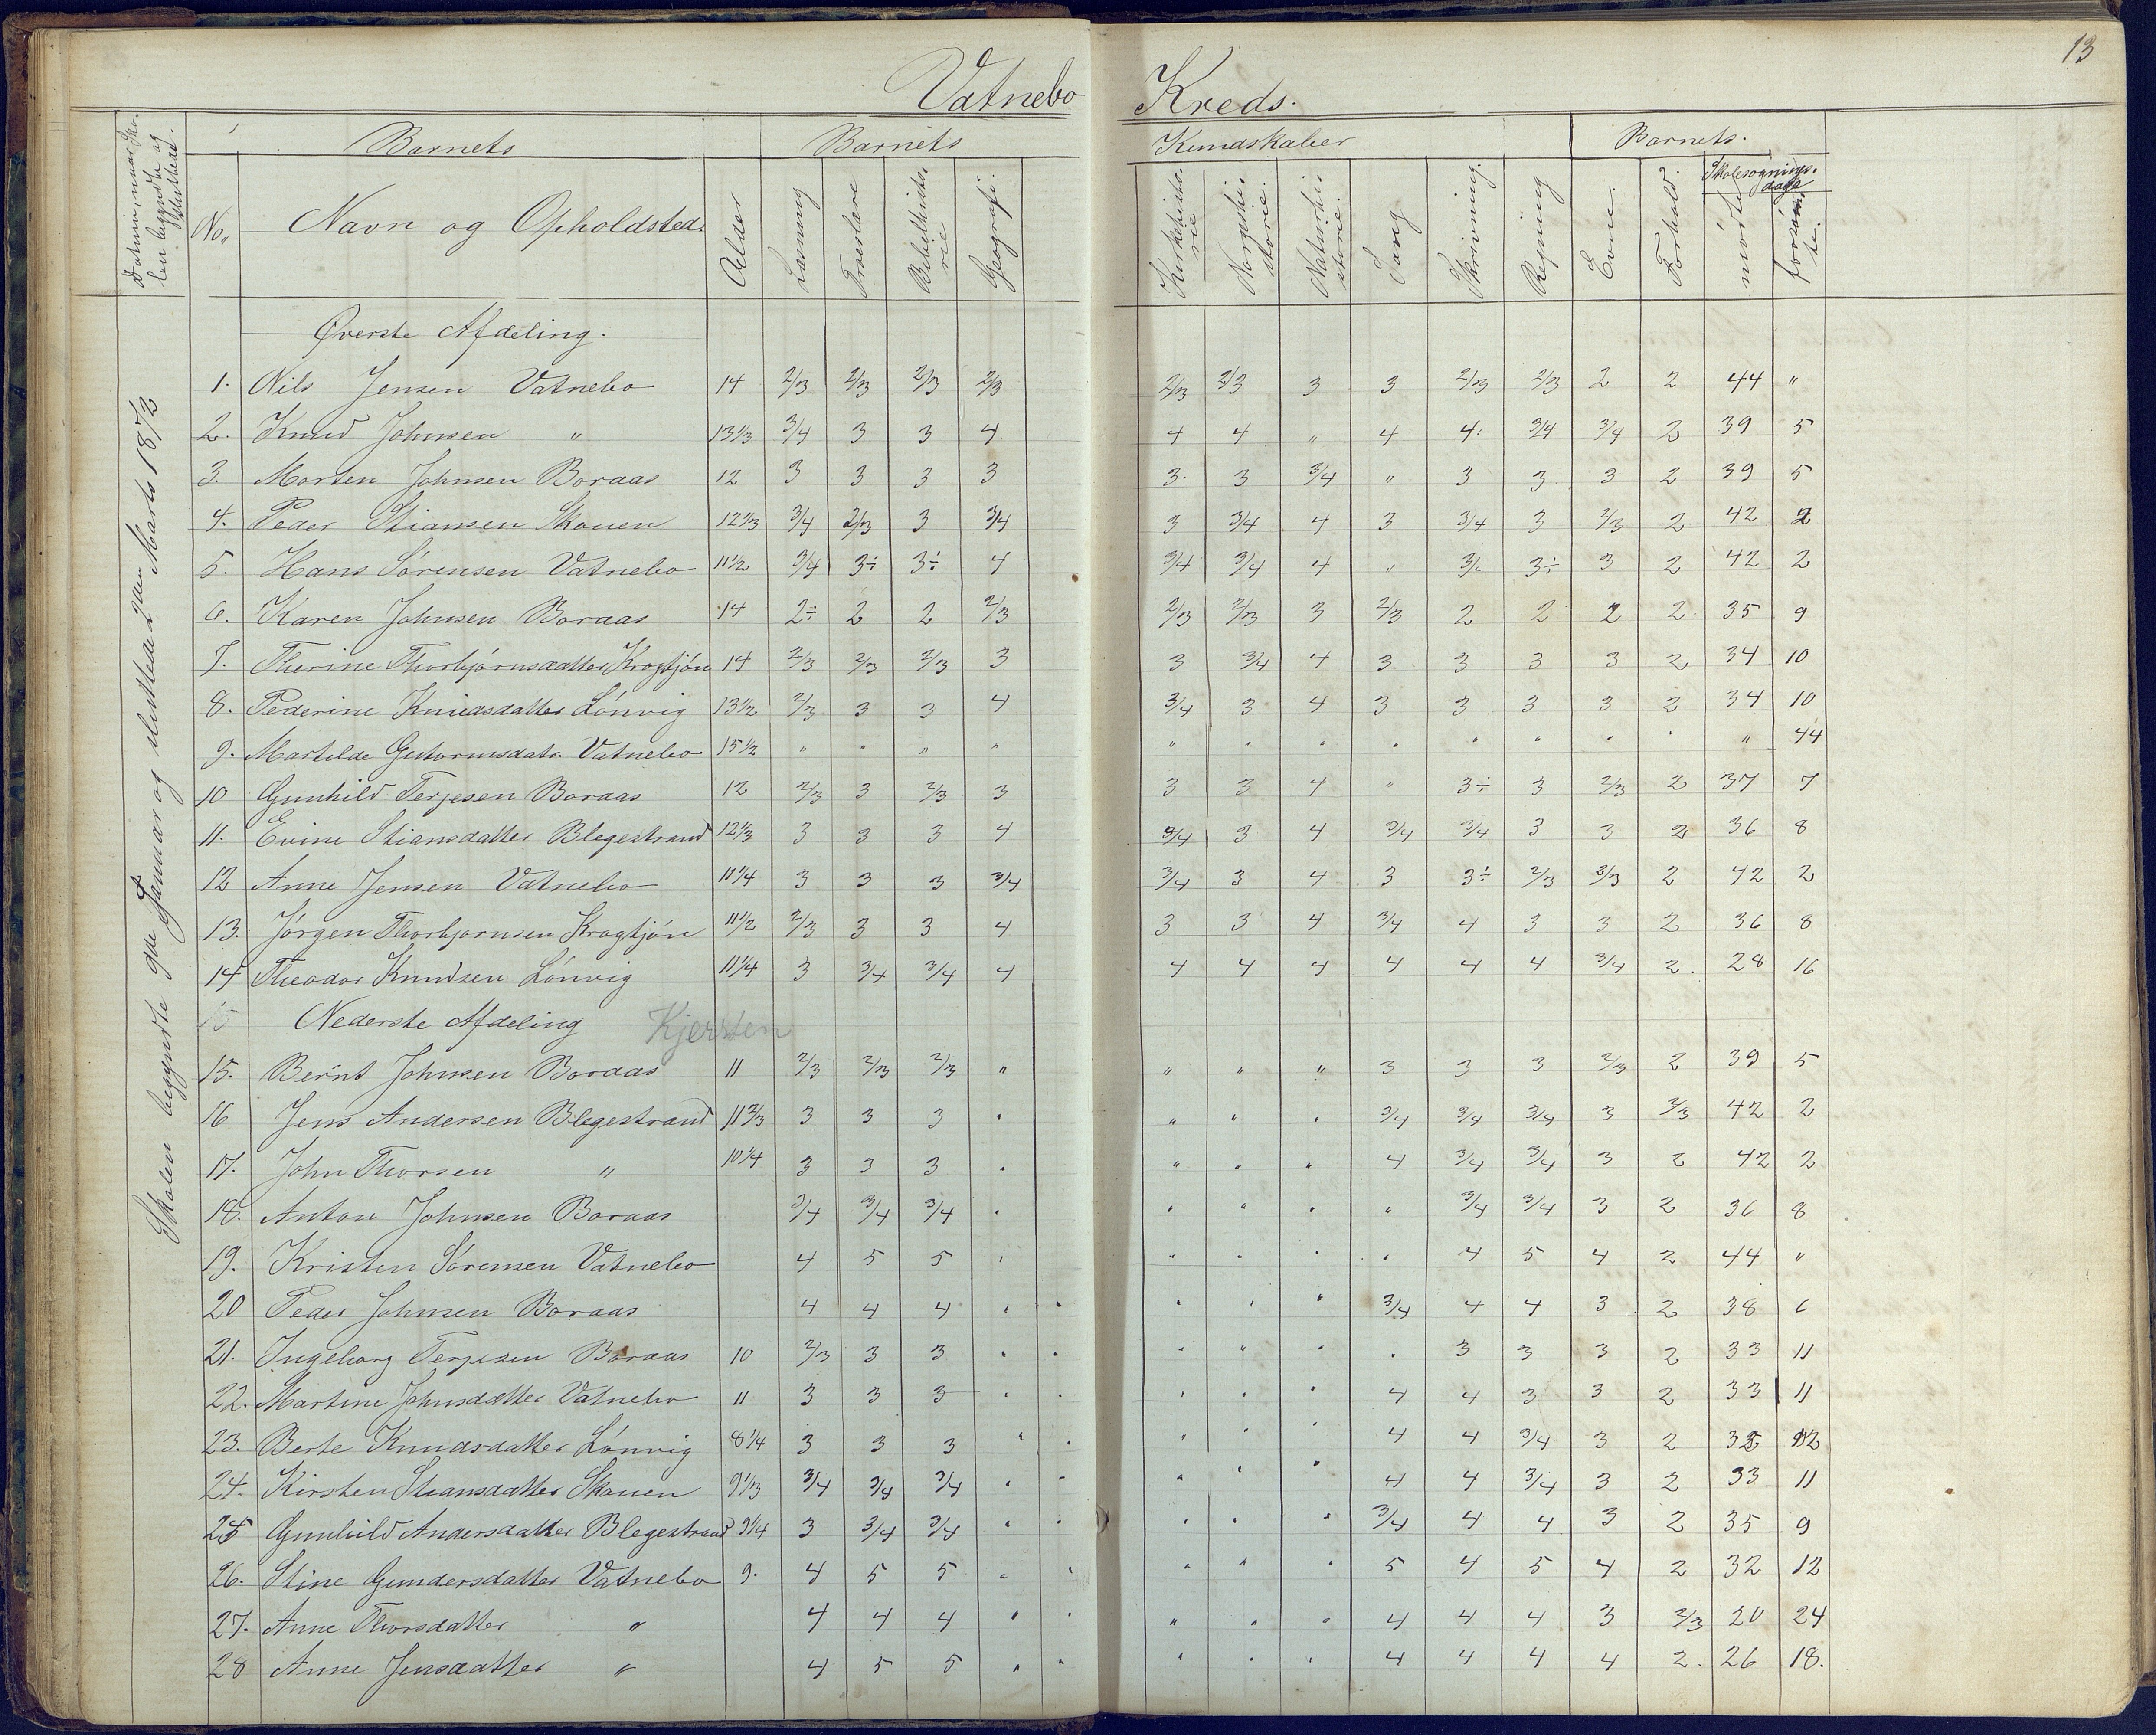 13
Vatnebo Kreds.
Datum, naar Sko-
len begyndte og
sluttede.
Barnets Barnets Kundskaber Barnets.
No. Navn og Opholdsted. Alder Læsning Troeslære Bibelhisto-
rie Geografi. Kirkehisto-
rie Norgeshi-
storie. Naturhi-
storie. Sang Skrivning. Regning Evne. Forhold. Skolesøgnings-
dage
mødte forsøm-
te.
Skolen begyndte 9de Januar og sluttede 2den Marts 1872
Øverste Afdeling.
1. Nils Jensen Vatnebo 14 2/3 2/3 2/3 2/3 2/3 2/3 3 3 2/3 2/3 2 2 44 "
2. Knud Johnsen " 13 1/3 3/4 3 3 4 4 4 " 4 4 3/4 3/4 2 39 5
3. Morten Johnsen Boraas 12 3 3 3 3 3 3 3/4 " 3 3 3 2 39 5
4. Peder Stiansen Skouen 12 1/3 3/4 2/3 3 3/4 3 3/4 4 3 3/4 3 2/3 2 42 2
5. Hans Sørensen Vatnebo 11 1/2 3/4 3÷ 3÷ 4 3/4 3/4 4 " 3÷ 3 2 42 2
6. Karen Johnsen Boraas 14 2÷ 2 2 2/3 2/3 2/3 3 2/3 2 2 2 2 35 9
7. Thorbjørnsdatter Krogtjøn 14 2/3 2/3 2/3 3 3 3/4 4 3 3 3 3 2 34 10
8. Pederine Knudsdatter Lønvig 13 1/2 2/3 3 3 4 3/4 3 4 3 3 3 3 2 34 10
9. Martilde Gutormsdatr. Vatnebo 15 1/2 " " " " " " " " " " " " " 44
10 Gunhild Terjesen Boraas 12 2/3 3 2/3 3 3 3 4 " 3÷ 3 2/3 2 37 7
11. Evine Stiansdatter Blegestrand 12 1/3 3 3 3 4 3/4 3 4 3/4 3/4 3 3 2 36 8
12 Anne Jensen Vatnebo 11 1/4 3 3 3 3/4 3/4 3 4 3 3÷ 2/3 2/3 2 42 2
13. Jørgen Thorbjørnsen Krogtjøn 11 1/2 2/3 3 3 4 3 3 4 3/4 4 3 3 2 36 8
14 Theodor Knudsen Lønvig 11 1/4 3 3/4 3/4 4 4 4 4 4 4 4 3/4 2. 28 16
15 Nederste Afdeling Kjersten
15. Bernt Johnsen Boraas 11 2/3 2/3 2/3 " " " " 3 3 3 2/3 2 39 5
16 Jens Andersen Blegestrand 11 2/3 3 3 3 " " " " 3/4 3/4 3/4 3 2/3 42 2
17. John Thorsen " 10 1/4 3 3 3 " " " " 4 3/4 3/4 3 2 42 2
18. Anton Johnsen Boraas 3/4 3/4 3/4 " " " " " 3/4 3/4 3 2 36 8
19. Kristen Sørensen Vatnebo 4 5 5 " " " " " 4 5 4 2 44 "
20 Peder Johnsen Boraas 4 4 4 " " " " " 3/4 4 4 3 2 38 6
21. Ingeborg Terjesen Boraas 10 2/3 3 3 " " " " " " 3 3 3 2 33 11
22. Martine Johnsdatter Vatnebo 11 3 3 3 " " " " " 4 4 3 3 2 33 11
23. Berte Knudsdatter Lønvig 8 1/4 3 3 3 " " " " " 4 4 3/4 3 2 32 12
24. Kirsten Stiansdatter Skouen 9 1/3 3/4 3/4 3/4 " " " " " 4 4 3/4 3 2 33 11
25 Gunhild Andersdatter Blegestrand 9 1/4 3 3/4 3/4 " " " " " 3/4 4 4 3 2 35 9
26. Stine Gundersdatter Vatnebo 9. 4 5 5 " " " " " 5 4 5 4 2 32 12
27. Anne Thorsdatter " 4 4 4 " " " " " 4 4 4 3 2/3 20 24
28 Anne Jensdatter " 4 5 5 " " " " " 4 4 4 4 2. 26 18.